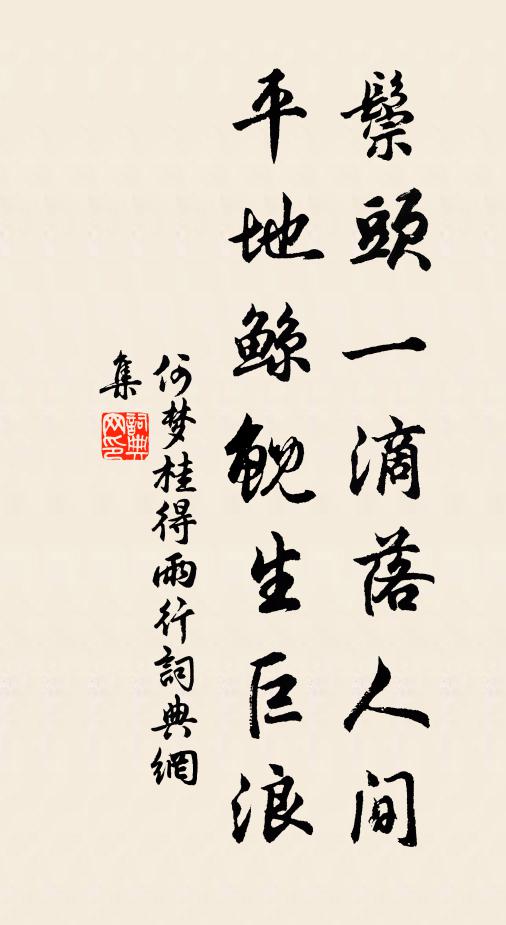 鬃頭一滴落人间
平地鲸鲵生巨浪
何梦桂得雨行詞典網
集
詞典
网印